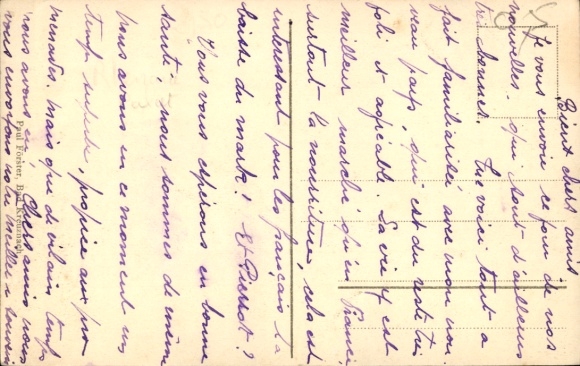 Bien chers amis
Je vous envoie ce jour de nos
nouvelles, qui sont d'ailleurs
très bonnes. Me voici tout à
fait familiarisé avec mon nou-
veau pays, qui est du reste très
joli et agréable. La vie y est
meilleur marché qu'en France,
surtout la nourriture, cela est
intéressant pour les français la
baisse du mark! Et Pierrot?
Vous vous espérons en bonne
santé, nous sommes de même
nous avons en ce moment un
temps superbe, propice aux pro-
menades. mais que de vilain temps
nous avons eu. Chers amis nous
vous envoyons notre meilleur souvenir
Paul Förster, Bad Kreuznach